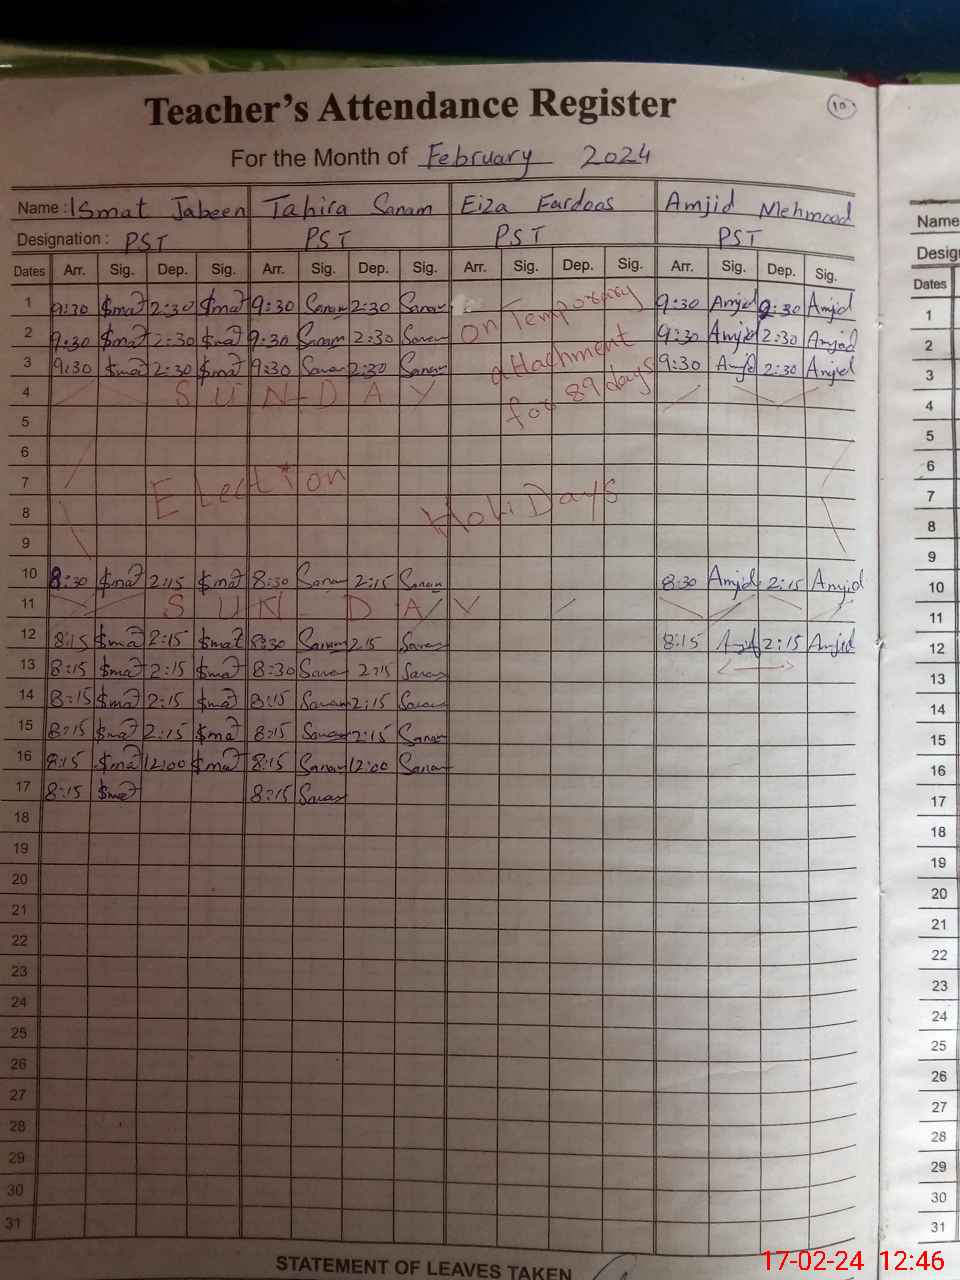 Teacher's Attendance Register
10
For the Month of February 2024
Name : Ismat Jabeen Tahira Sanam Eiza Fardoos Amjid Mehmood
Designation : PST PST PST PST
Dates Arr. Sig. Dep. Sig. Arr. Sig. Dep. Sig. Arr. Sig. Dep. Sig. Arr. Sig. Dep. Sig.
1 9:30 $mat 2:30 $mat 9:30 Sanam 2:30 Sanam 9:30 Amjid 2:30 Amjid
2 9:30 $mat 2:30 $mat 9:30 Sanam 2:30 Sanam 9:30 Amjid 2:30 Amjid
3 9:30 $mat 2:30 $mat 9:30 Sanam 2:30 Sanam 9:30 Amjid 2:30 Amjid
On Temporary
attachment
for 89 days
4 SUNDAY
5
6
7 Election
8 Holi Days
9
10 8:30 $mat 2:15 $mat 8:30 Sanam 2:15 Sanam 8:30 Amjid 2:15 Amjid
11 SUNDAY
12 8:15 $mat 2:15 $mat 8:30 Sanam 2.15 Sanam 8:15 Amjid 2:15 Amjid
13 8:15 $mat 2:15 $mat 8:30 Sanam 2:15 Sanam
14 8:15 $mat 2:15 $mat 8:15 Sanam 2:15 Sanam
15 8:15 $mat 2:15 $mat 8:15 Sanam 2:15 Sanam
16 8:15 $mat 12:00 $mat 8:15 Sanam 12:00 Sanam
17 8:15 $mat 8:15 Sanam
18
19
20
21
22
23
24
25
26
27
28
29
30
31
STATEMENT OF LEAVES TAKEN
Name
Desig
Dates
1
2
3
4
5
6
7
8
9
10
11
12
13
14
15
16
17
18
19
20
21
22
23
24
25
26
27
28
29
30
31
17-02-24 12:46